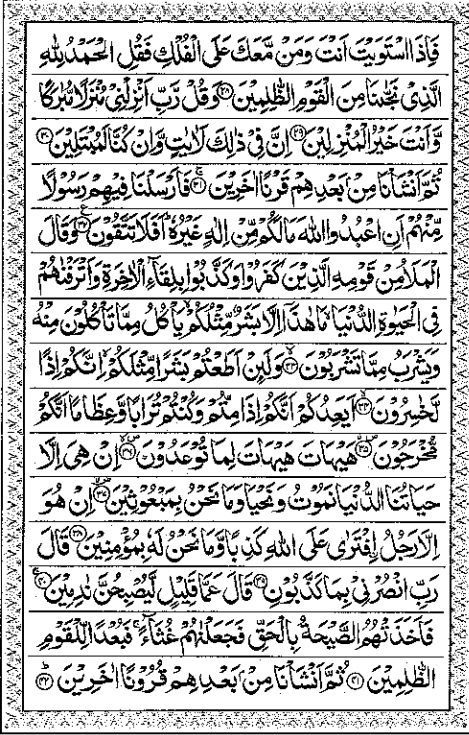 فَاِذَا اسْتَوَيْتَ اَنْتَ وَمَنْ مَّعَكَ عَلَى الْفُلْكِ فَقُلِ الْحَمْدُ لِلّٰهِ
الَّذِیْ نَجّٰنَا مِنَ الْقَوْمِ الظّٰلِمِیْنَ ﴿۲۸﴾ وَقُلْ رَّبِّ اَنْزِلْنِیْ مُنْزَلًا مُّبٰرَكًا
وَّاَنْتَ خَیْرُ الْمُنْزِلِیْنَ ﴿۲۹﴾ اِنَّ فِیْ ذٰلِكَ لَاٰیٰتٍ وَّاِنْ كُنَّا لَمُبْتَلِیْنَ ﴿۳۰﴾
ثُمَّ اَنْشَاْنَا مِنْۢ بَعْدِهِمْ قَرْنًا اٰخَرِیْنَ ﴿۳۱﴾ فَاَرْسَلْنَا فِیْهِمْ رَسُوْلًا
مِّنْهُمْ اَنِ اعْبُدُوا اللّٰهَ مَا لَكُمْ مِّنْ اِلٰهٍ غَیْرُهٗ ؕ اَفَلَا تَتَّقُوْنَ ﴿۳۲﴾ وَقَالَ
الْمَلَاُ مِنْ قَوْمِهِ الَّذِیْنَ كَفَرُوْا وَكَذَّبُوْا بِلِقَآءِ الْاٰخِرَةِ وَاَتْرَفْنٰهُمْ
فِی الْحَیٰوةِ الدُّنْیَا ۙ مَا هٰذَاۤ اِلَّا بَشَرٌ مِّثْلُكُمْ ۙ یَاْكُلُ مِمَّا تَاْكُلُوْنَ مِنْهُ
وَیَشْرَبُ مِمَّا تَشْرَبُوْنَ ﴿۳۳﴾ وَلَىِٕنْ اَطَعْتُمْ بَشَرًا مِّثْلَكُمْ ۙ اِنَّكُمْ اِذًا
لَّخٰسِرُوْنَ ﴿۳۴﴾ اَیَعِدُكُمْ اَنَّكُمْ اِذَا مِتُّمْ وَكُنْتُمْ تُرَابًا وَّعِظَامًا اَنَّكُمْ
مُّخْرَجُوْنَ ﴿۳۵﴾ هَیْهَاتَ هَیْهَاتَ لِمَا تُوْعَدُوْنَ ﴿۳۶﴾ اِنْ هِیَ اِلَّا
حَیَاتُنَا الدُّنْیَا نَمُوْتُ وَنَحْیَا وَمَا نَحْنُ بِمَبْعُوْثِیْنَ ﴿۳۷﴾ اِنْ هُوَ
اِلَّا رَجُلُ اِفْتَرٰی عَلَی اللّٰهِ كَذِبًا وَّمَا نَحْنُ لَهٗ بِمُؤْمِنِیْنَ ﴿۳۸﴾ قَالَ
رَبِّ انْصُرْنِیْ بِمَا كَذَّبُوْنِ ﴿۳۹﴾ قَالَ عَمَّا قَلِیْلٍ لَّیُصْبِحُنَّ نٰدِمِیْنَ ﴿۴۰﴾
فَاَخَذَتْهُمُ الصَّیْحَةُ بِالْحَقِّ فَجَعَلْنٰهُمْ غُثَآءً ۚ فَبُعْدًا لِّلْقَوْمِ
الظّٰلِمِیْنَ ﴿۴۱﴾ ثُمَّ اَنْشَاْنَا مِنْۢ بَعْدِهِمْ قُرُوْنًا اٰخَرِیْنَ ﴿۴۲﴾